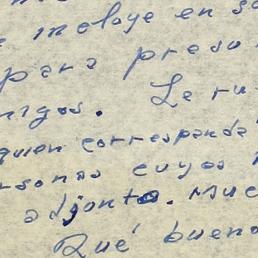 e incluye en s
para presu
migos. Le ru
quien corresponda
rsonas cuyos
adjunto. Muc
Qué bueno